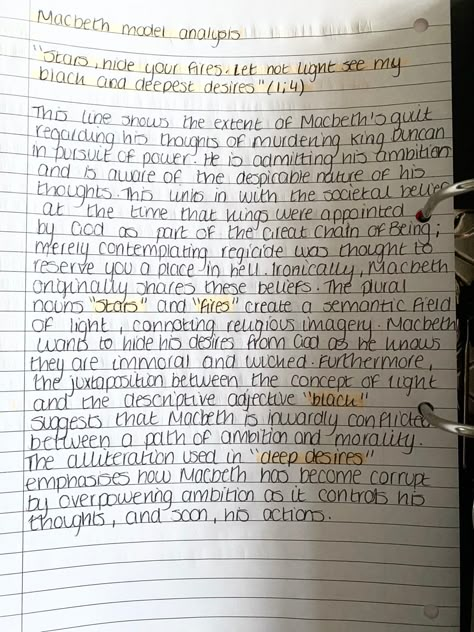 Macbeth model analysis
"Stars, hide your fires. Let not light see my
black and deepest desires" (1;4)
This line shows the extent of Macbeth's guilt
regarding his thoughts of murdering King Duncan
in pursuit of power. He is admitting his ambition
and is aware of the despicable nature of his
thoughts. This links in with the societal beliefs
at the time that kings were appointed
by God as part of the Great Chain of Being;
merely contemplating regicide was thought to
reserve you a place in hell. Ironically, Macbeth
originally shares these beliefs. The plural
nouns "stars" and "fires" create a semantic field
of light, connoting religious imagery. Macbeth
wants to hide his desires from God as he knows
they are immoral and wicked. Furthermore,
the juxtaposition between the concept of light
and the descriptive adjective "black"
suggests that Macbeth is inwardly conflicted
between a path of ambition and morality.
The alliteration used in "deep desires"
emphasises how Macbeth has become corrupt
by overpowering ambition as it controls his
thoughts, and soon, his actions.